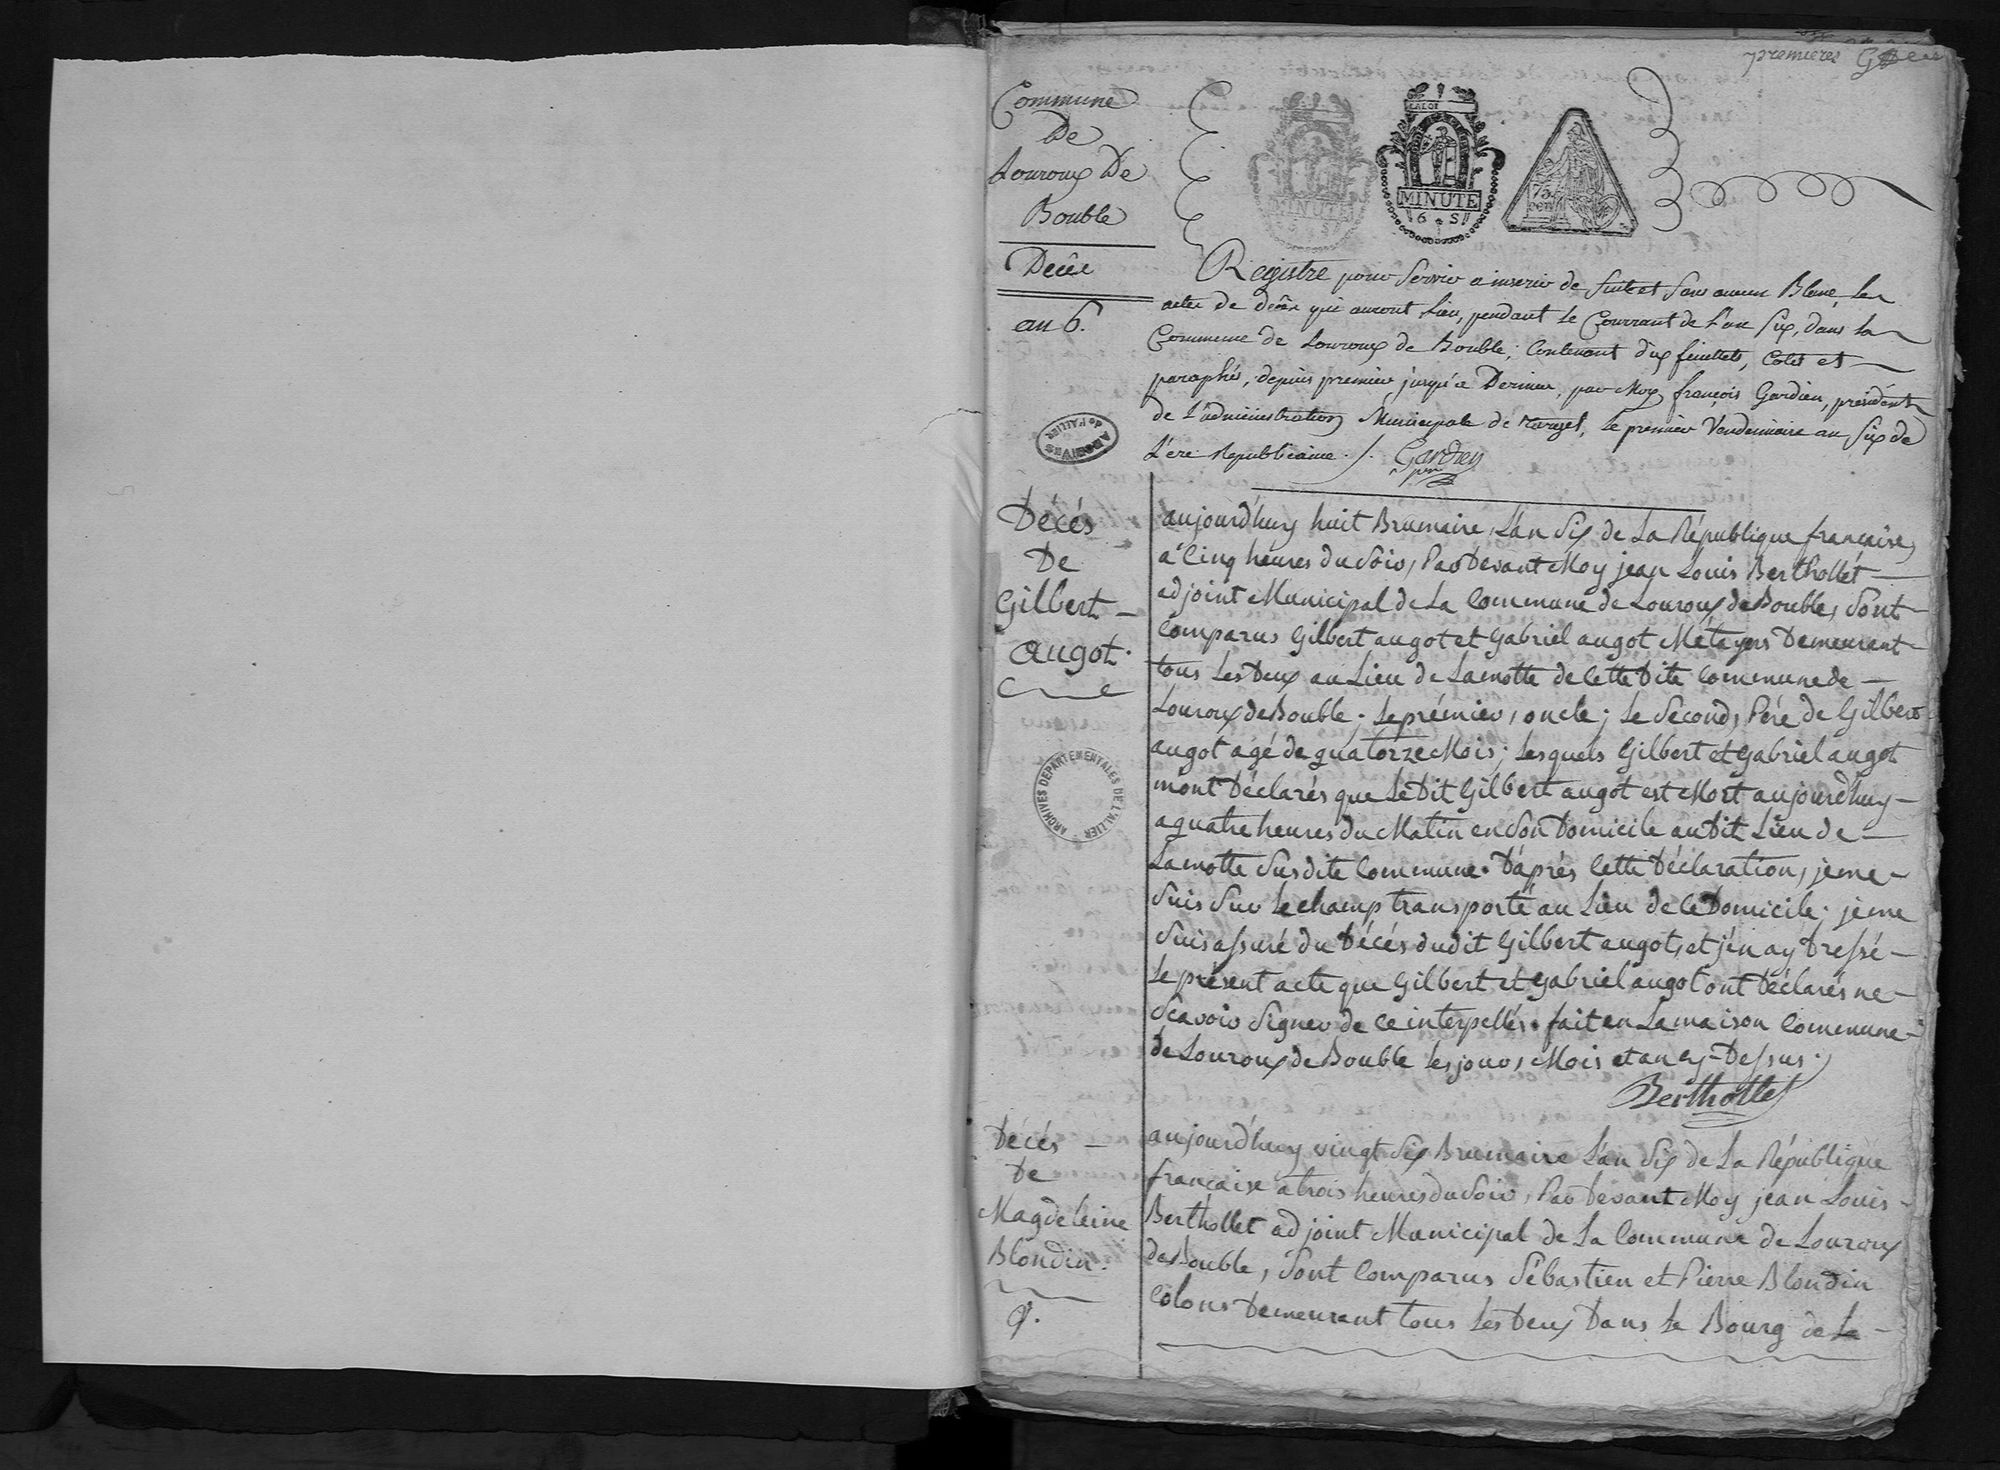 premieres
Commune
De
Louroux De
Bouble
Décès
an 6.
LA LOI
MINUTE
6 S
MINUTE
6 S
75
cen
Registre pour servir a inserer de suite et sans aucun Blanc, les
actes de décès qui auront lieu, pendant le Courrant de l'an six, dans la
Commune de Louroux de Bouble; Contenant dix feuillets, Cotés et
paraphés, depuis premier jusqu'à Dernier, par Moy françois Gardien, président
de L'administration Municipale de Target, le premier Vendemiaire an Six de
L'ere Republicaine ./. Gardien
ARCHIVES
de l'ALLIER
Décés
De
Gilbert
augot.
ARCHIVES DEPARTEMENTALES DE L'ALLIER
aujourd'huy huit Brumaire, L'an Six de La République française,
a Cinq heures du Soir, Par Devant Moy jean Louis Berthollet
adjoint Municipal de La Commune de Louroux de Bouble, Sont
Comparus Gilbert augot et Gabriel augot Métayers Demeurant
tous Les Deux au Lieu de Lamotte de Cette Dite Commune de
Louroux de Bouble. Le prémier, oncle; Le Second, Pére de Gilbert
augot agé de quatorze Mois; Lesquels Gilbert et Gabriel augot
mont Déclarés que Le Dit Gilbert augot est Mort aujourd'huy
a quatre heures du Matin en Son Domicile au Dit Lieu de
Lamotte Susdite Commune. D'aprés Cette Déclaration, je me
Suis Sur Le champ transporté au Lieu de Ce Domicile; je me
Suis assuré du Décés dudit Gilbert augot, et j'en ay Dressé
Le présent acte que Gilbert et Gabriel augot ont Déclarés ne
Scavoir Signer de Ce interpellés. fait en La maison Commune
de Louroux de Bouble Les jour, Mois et an cy-Dessus.
Berthollet
Décés
De
Magdeleine
Blondin.
aujourd'huy vingt Six Brumaire L'an Six de La République
française a trois heures du Soir, Par Devant Moy jean Louis
Berthollet adjoint Municipal de La Commune de Louroux
de Bouble, Sont Comparus Sébastien et Pierre Blondin
Colons Demeurant tous Les Deux Dans Le Bourg de La